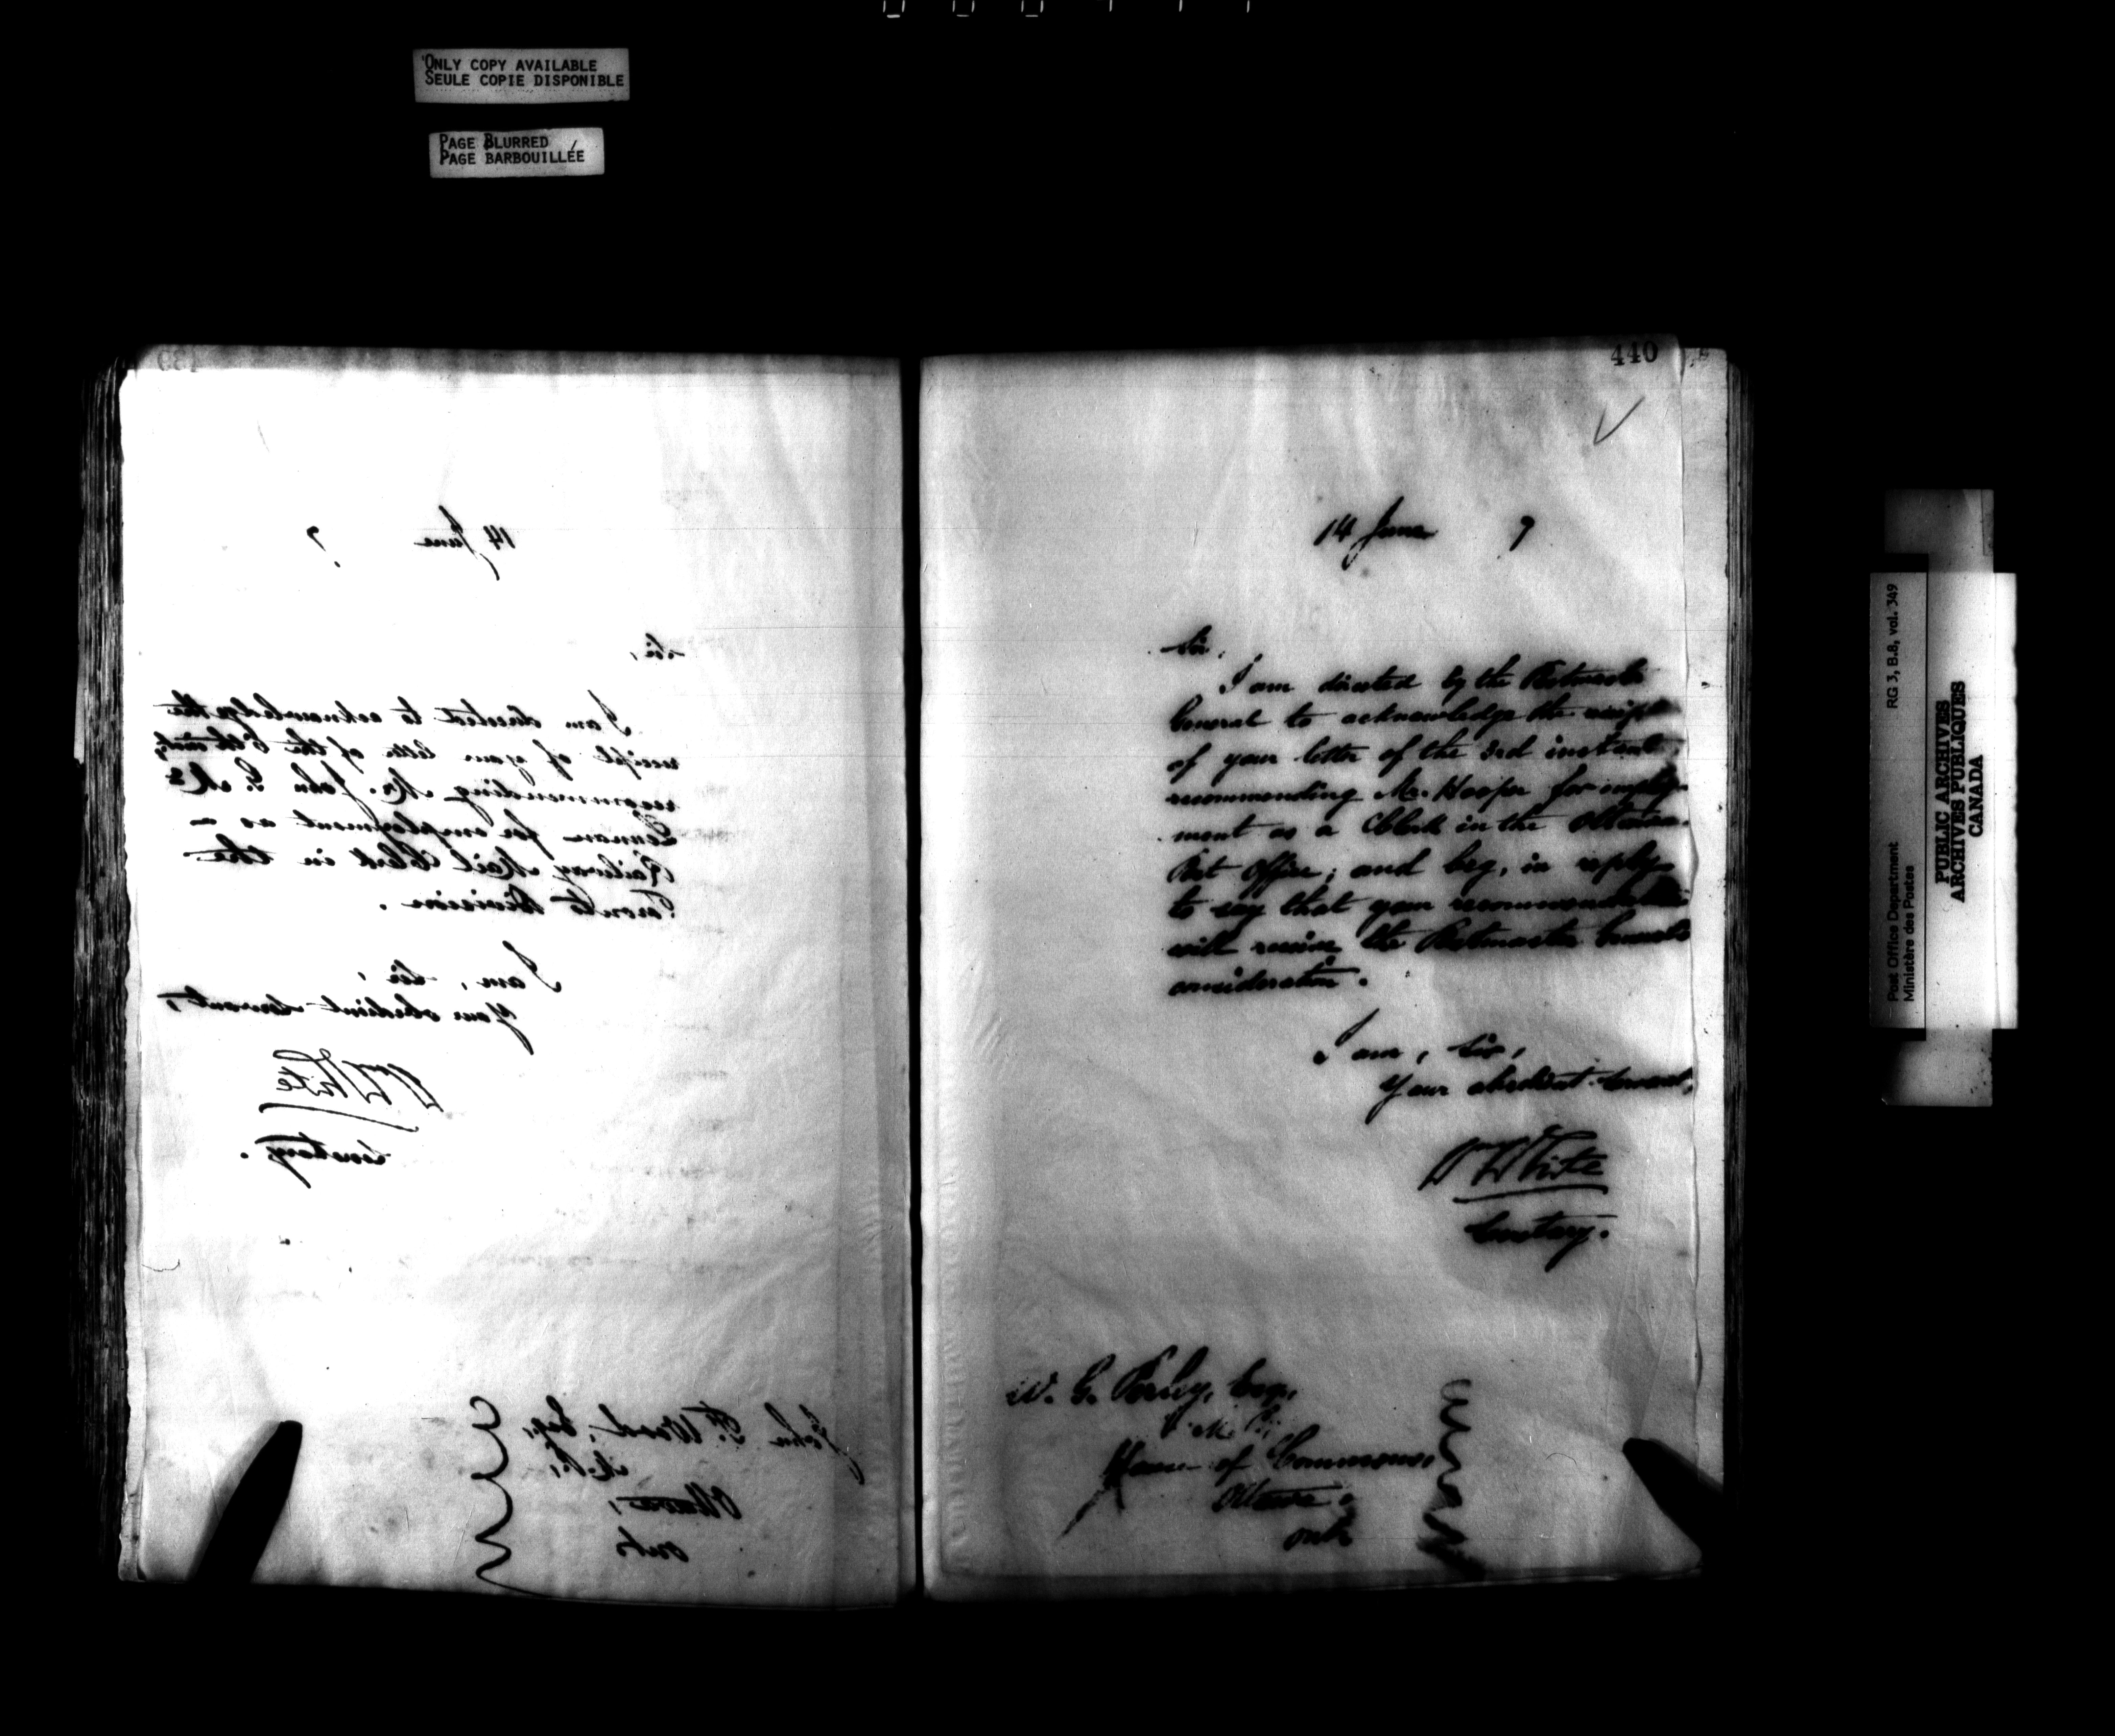 ONLY COPY AVAILABLE
SEULE COPIE DISPONIBLE
PAGE BLURRED
PAGE BARBOUILLÉE
439
14 June 7
Sir,
I am directed to acknowledge the
receipt of your letter of the 6th inst,
recommending Mr. John G. Mc
Lennan for employment as a
Railway Mail Clerk in the
Toronto Division.
I am, Sir,
Your obedient Servant,
Wm White
Secretary.
John F. Wood, Esq,
M.P.,
Ottawa,
Ont
440
14 June 7
Sir,
I am directed by the Postmaster
General to acknowledge the receipt
of your letter of the 3rd instant,
recommending Mr. Hooper for employ-
ment as a Clerk in the Ottawa
Post Office; and beg, in reply,
to say that your recommendation
will receive the Postmaster General's
consideration.
I am, Sir,
Your obedient Servant,
Wm White
Secretary.
W. G. Perley, Esq,
M.P.,
House of Commons,
Ottawa,
Ont
Post Office Department
Ministère des Postes
RG 3, B.8, vol. 349
PUBLIC ARCHIVES
ARCHIVES PUBLIQUES
CANADA